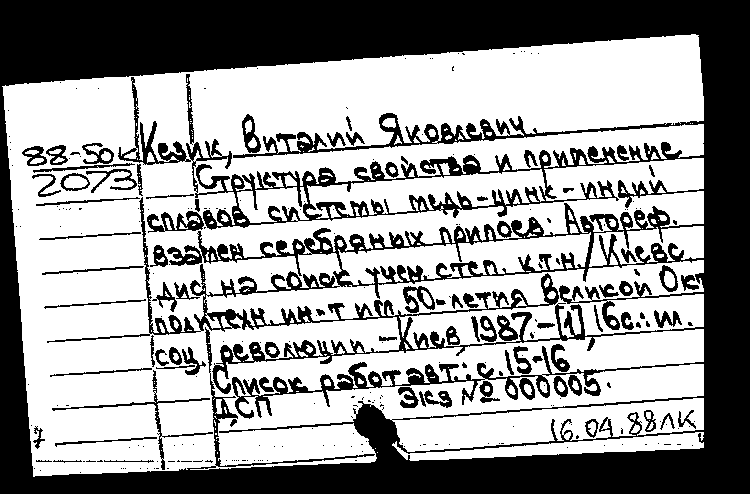 88-50к Кезик, Виталий Яковлевич.
2073 Структура, свойства и применение
сплавов системы медь-цинк-индий
взамен серебряных припоев: Автореф.
дис. на соиск. учен. степ. к.т.н. / Киевс.
политехн. ин-т им. 50-летия Великой Окт
соц. революции. - Киев, 1987. - [1], 16с.: ил.
Список работ авт.: с. 15-16
ДСП Экз № 000005.
16.04.88 ЛК